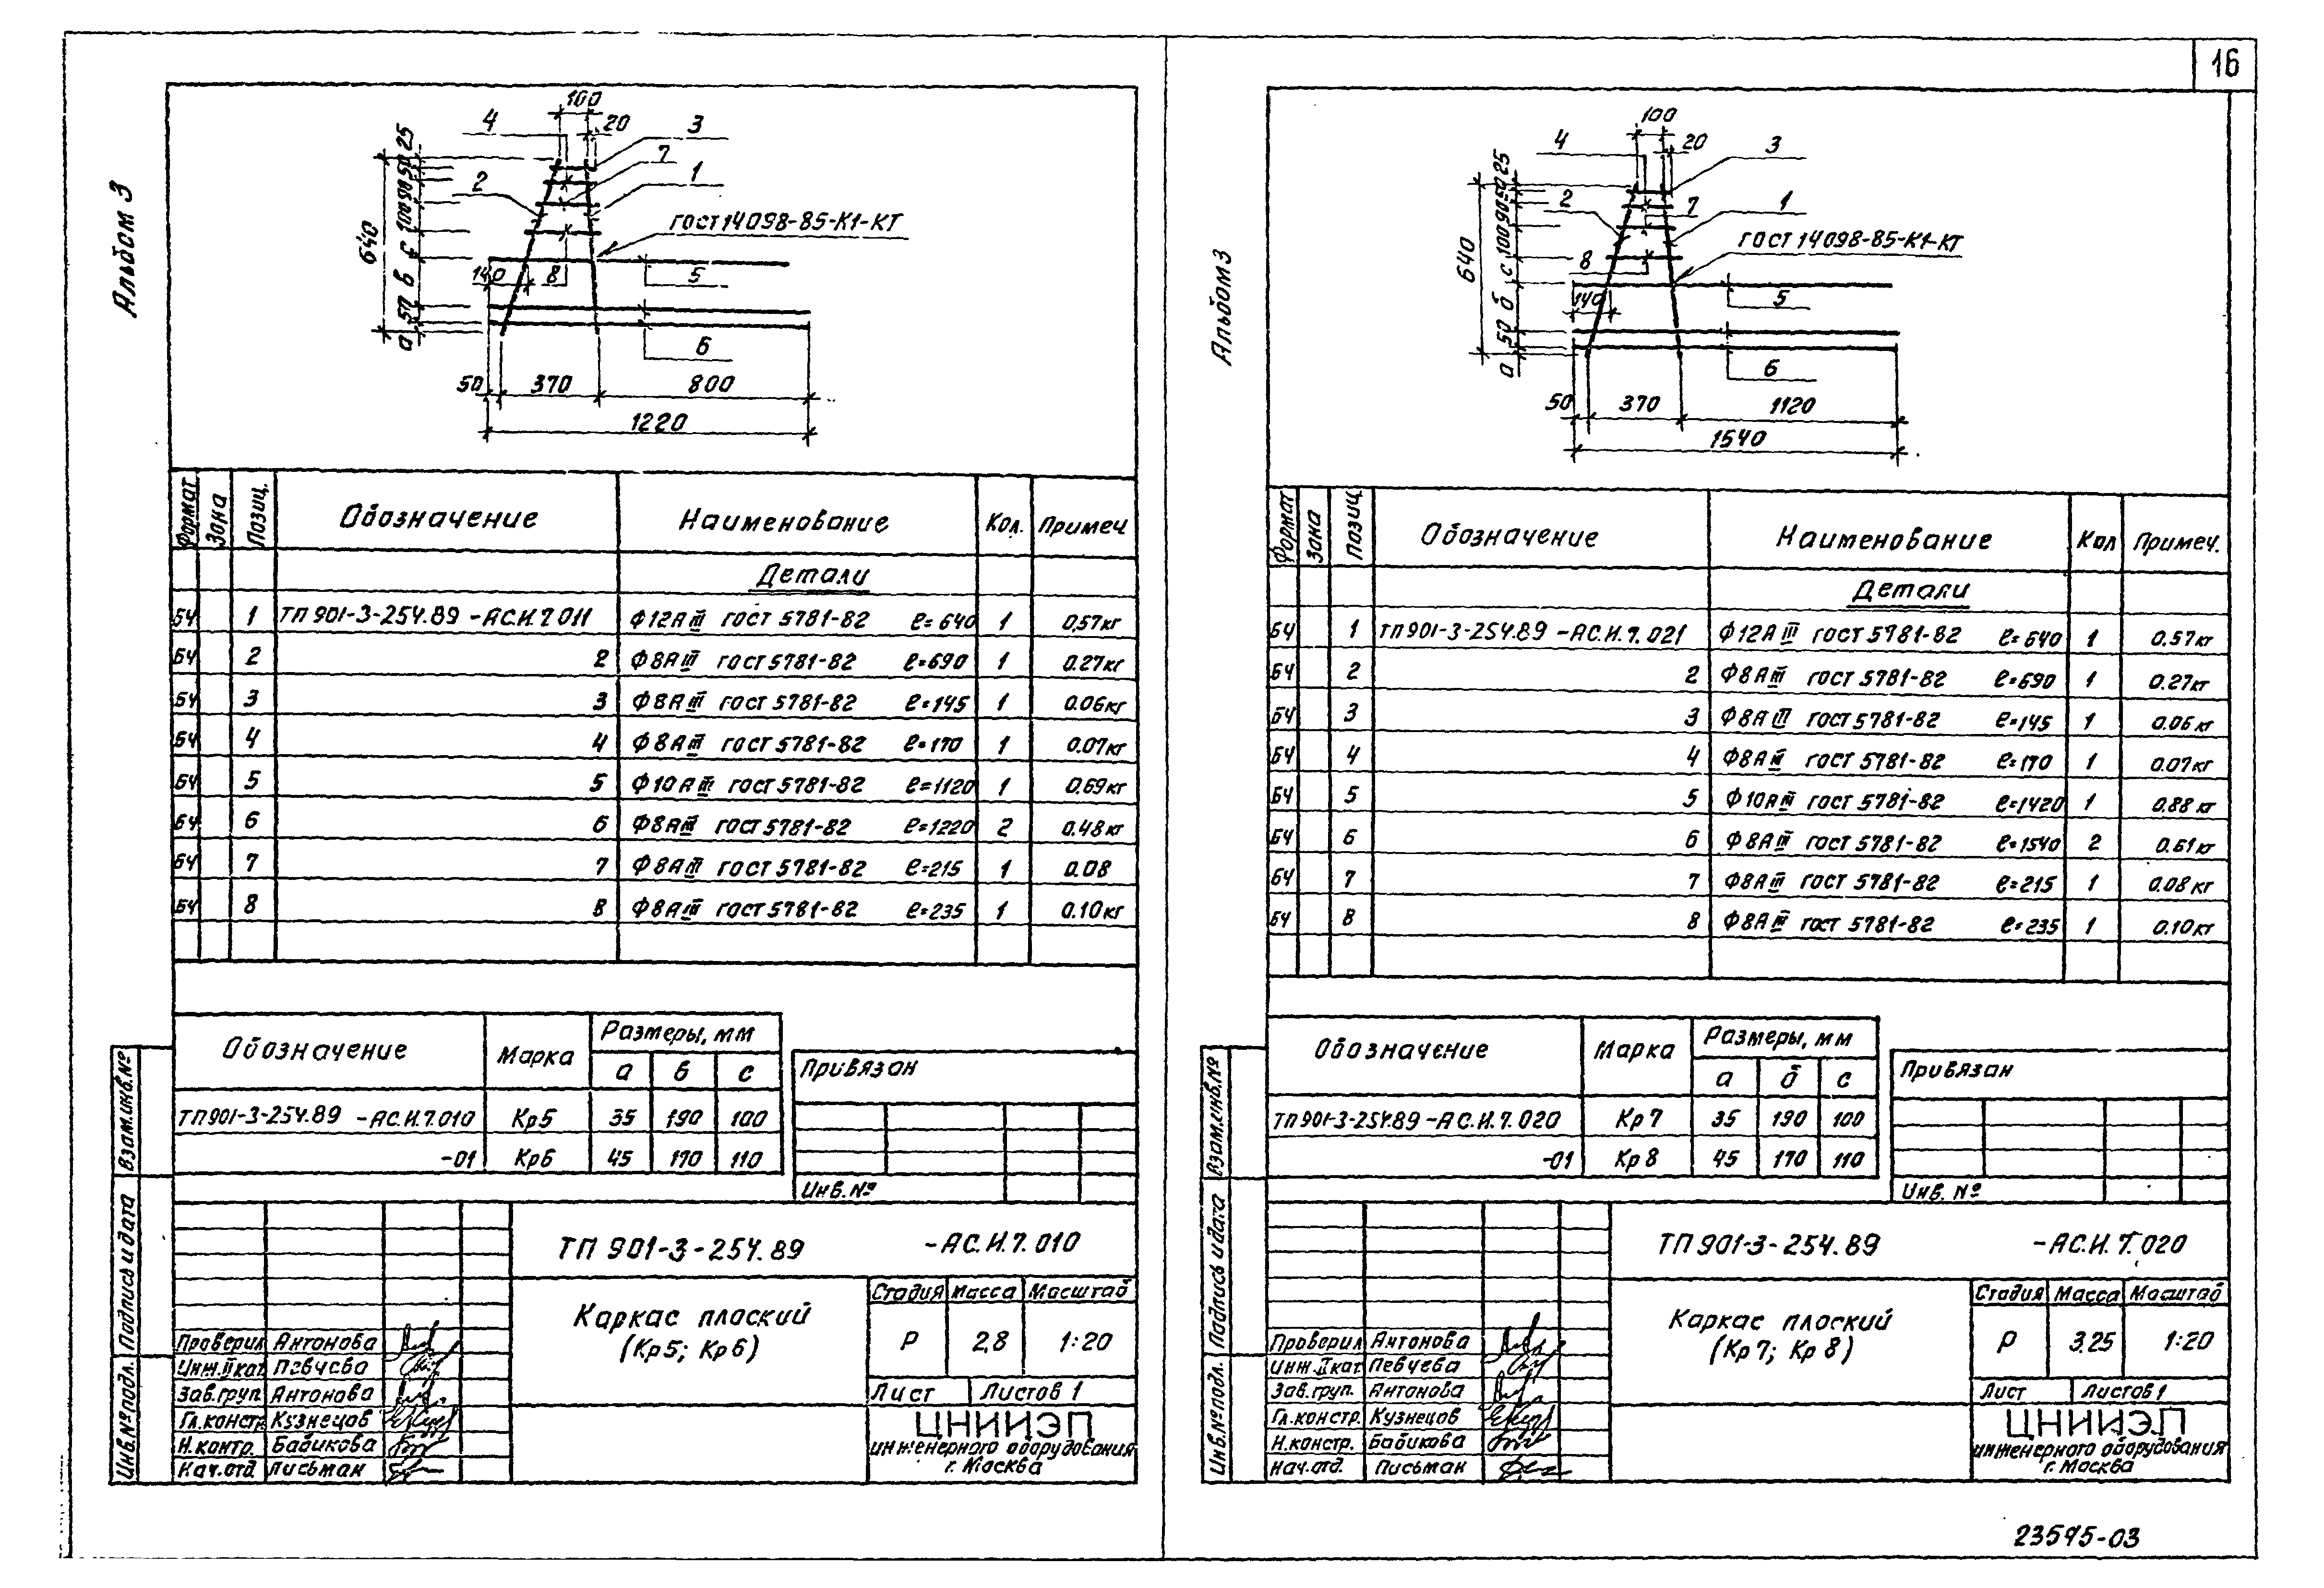 16
Альбом 3
100
20
4
3
7
1
2
ГОСТ 14098-85-К1-КТ
25
50
90
100
с
в
50
а
640
140
8
5
6
50 370 800
1220
Формат Зона Позиц. Обозначение Наименование Кол. Примеч
Детали
БЧ 1 ТП 901-3-254.89 -АС.И.7.011 Ф12АIII ГОСТ 5781-82 ℓ=640 1 0,57кг
БЧ 2 2 Ф8АIII ГОСТ 5781-82 ℓ=690 1 0.27кг
БЧ 3 3 Ф8АIII ГОСТ 5781-82 ℓ=145 1 0.06кг
БЧ 4 4 Ф8АIII ГОСТ 5781-82 ℓ=170 1 0.07кг
БЧ 5 5 Ф10АIII ГОСТ 5781-82 ℓ=1120 1 0.69кг
БЧ 6 6 Ф8АIII ГОСТ 5781-82 ℓ=1220 2 0.48кг
БЧ 7 7 Ф8АIII ГОСТ 5781-82 ℓ=215 1 0.08
БЧ 8 8 Ф8АIII ГОСТ 5781-82 ℓ=235 1 0.10кг
Обозначение Марка Размеры, мм
а в с
ТП901-3-254.89 -АС.И.7.010 Кр5 35 190 100
-01 Кр6 45 170 110
Привязан
Инв.№
Взам.инв.№
Подпись и дата
Инв.№подл.
ТП 901-3-254.89 -АС.И.7.010
Каркас плоский
(Кр5; Кр6)
Стадия Масса Масштаб
Р 2,8 1:20
Лист Листов 1
ЦНИИЭП
инженерного оборудования
г. Москва
Проверил Антонова
Инж.IIкат Певчева
Зав.груп. Антонова
Гл.констр. Кузнецов
Н.контр. Бабикова
Нач.отд. Письман
Альбом 3
100
20
4
3
2
7
1
ГОСТ 14098-85-К1-КТ
25
50
90
100
с
б
50
а
640
8
140
5
6
50 370 1120
1540
Формат Зона Позиц Обозначение Наименование Кол Примеч.
Детали
БЧ 1 ТП901-3-254.89 -АС.И.7.021 Ф12АIII ГОСТ 5781-82 ℓ=640 1 0.57кг
БЧ 2 2 Ф8АIII ГОСТ 5781-82 ℓ=690 1 0.27кг
БЧ 3 3 Ф8АIII ГОСТ 5781-82 ℓ=145 1 0.06кг
БЧ 4 4 Ф8АIII ГОСТ 5781-82 ℓ=170 1 0.07кг
БЧ 5 5 Ф10АIII ГОСТ 5781-82 ℓ=1420 1 0.88кг
БЧ 6 6 Ф8АIII ГОСТ 5781-82 ℓ=1540 2 0.61кг
БЧ 7 7 Ф8АIII ГОСТ 5781-82 ℓ=215 1 0.08кг
БЧ 8 8 Ф8АIII ГОСТ 5781-82 ℓ=235 1 0.10кг
Обозначение Марка Размеры, мм
а б с
ТП901-3-254.89 -АС.И.7.020 Кр7 35 190 100
-01 Кр8 45 170 110
Привязан
Инв. №
Взам.инв.№
Подпись и дата
Инв.№подл.
ТП 901-3-254.89 -АС.И.7.020
Каркас плоский
(Кр7; Кр8)
Стадия Масса Масштаб
Р 3.25 1:20
Лист Листов 1
ЦНИИЭП
инженерного оборудования
г. Москва
Проверил Антонова
Инж.IIкат Певчева
Зав.груп. Антонова
Гл.констр. Кузнецов
Н.констр. Бабикова
Нач.отд. Письман
23595-03